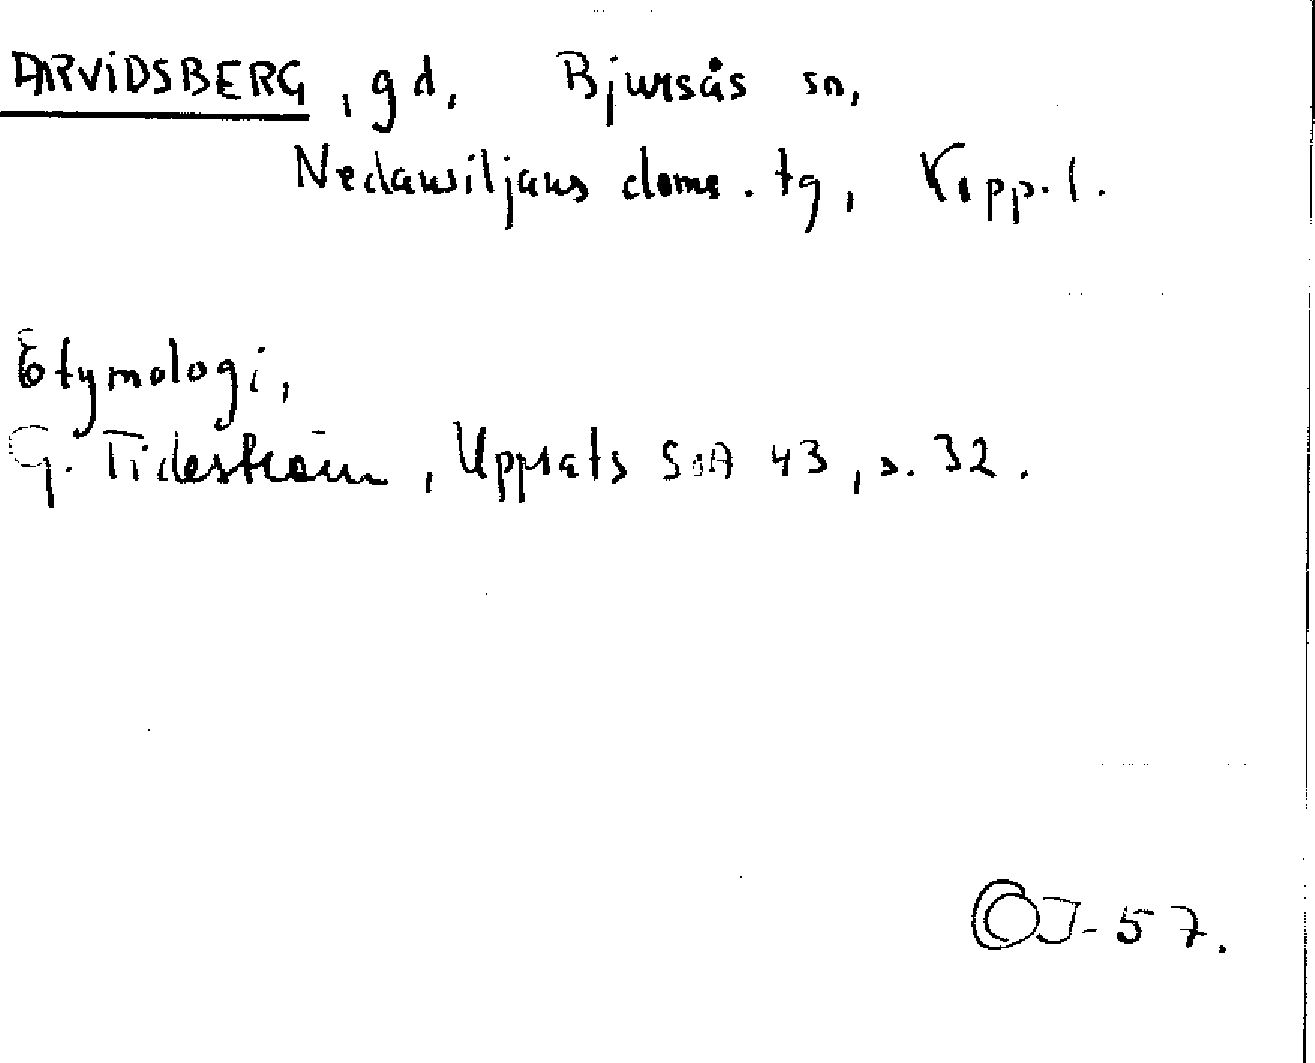 ARVIDSBERG, gd, Bjursås sn,
Nedansiljans doms. tg, Kopp. l.
Etymologi,
G. Tideström, Uppsats SOA 43, s. 32.
OJ-57.